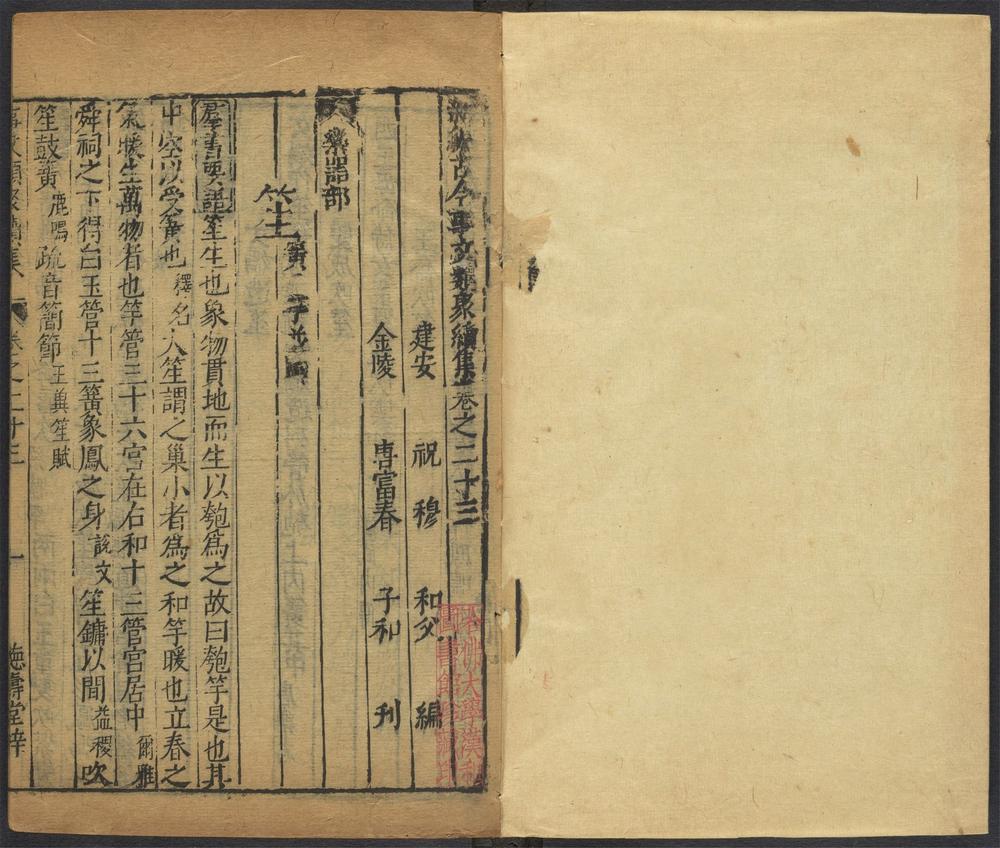 新編古今事文類聚續集卷之二十三
建安 祝 穆 和父 編
金陵 唐富春 子和 刊
樂器部
笙 簧 竽並
羣書要語笙生也象物貫地而生以匏爲之故曰匏竽是也其
中空以受簧也釋名大笙謂之巢小者爲之和竽暖也立春之
氣暖生萬物者也竽管三十六宮在右和十三管宮居中爾雅
舜祠之下得白玉管十三簧象鳳之身說文笙鏞以間益稷吹
笙鼓簧鹿鳴疏音簡節王褒笙賦
事文類聚續集 卷之二十三 一 德壽堂梓
哈佛大學漢和
圖書館珍藏印